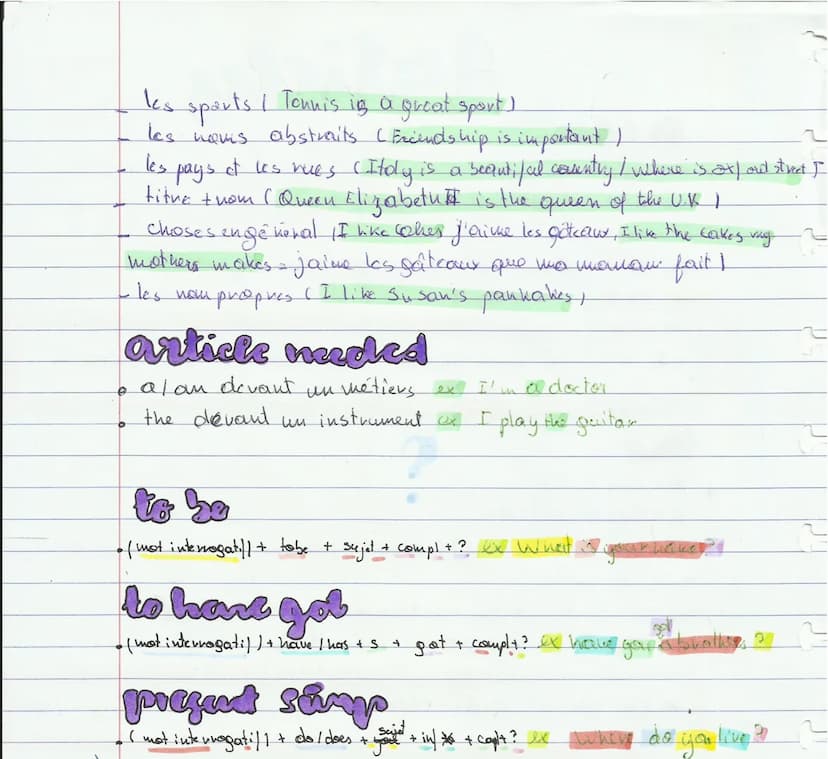 - les sports ( Tennis is a great sport )
- les noms abstraits ( Friendship is important )
- les pays et les rues ( Italy is a beautiful country / where is oxford street )
- titre + nom ( Queen Elizabeth II is the queen of the U.K )
- choses en général ( I like cakes j'aime les gâteaux, I like the cakes my
mothers makes = j'aime les gâteaux que ma maman fait )
- les nom propres ( I like Susan's pankakes )
article needed
• a/an devant un métiers ex I'm a doctor
• the devant un instrument ex I play the guitar
?
to be
• (mot interrogatif) + to be + sujet + compl + ? ex What is your name ?
to have got
• (mot interrogatif) + have / has + s + got + compl + ? ex have you got brothers ?
present simp
• (mot interrogatif) + do / does + sujet + inf + cplt + ? ex Where do you live ?